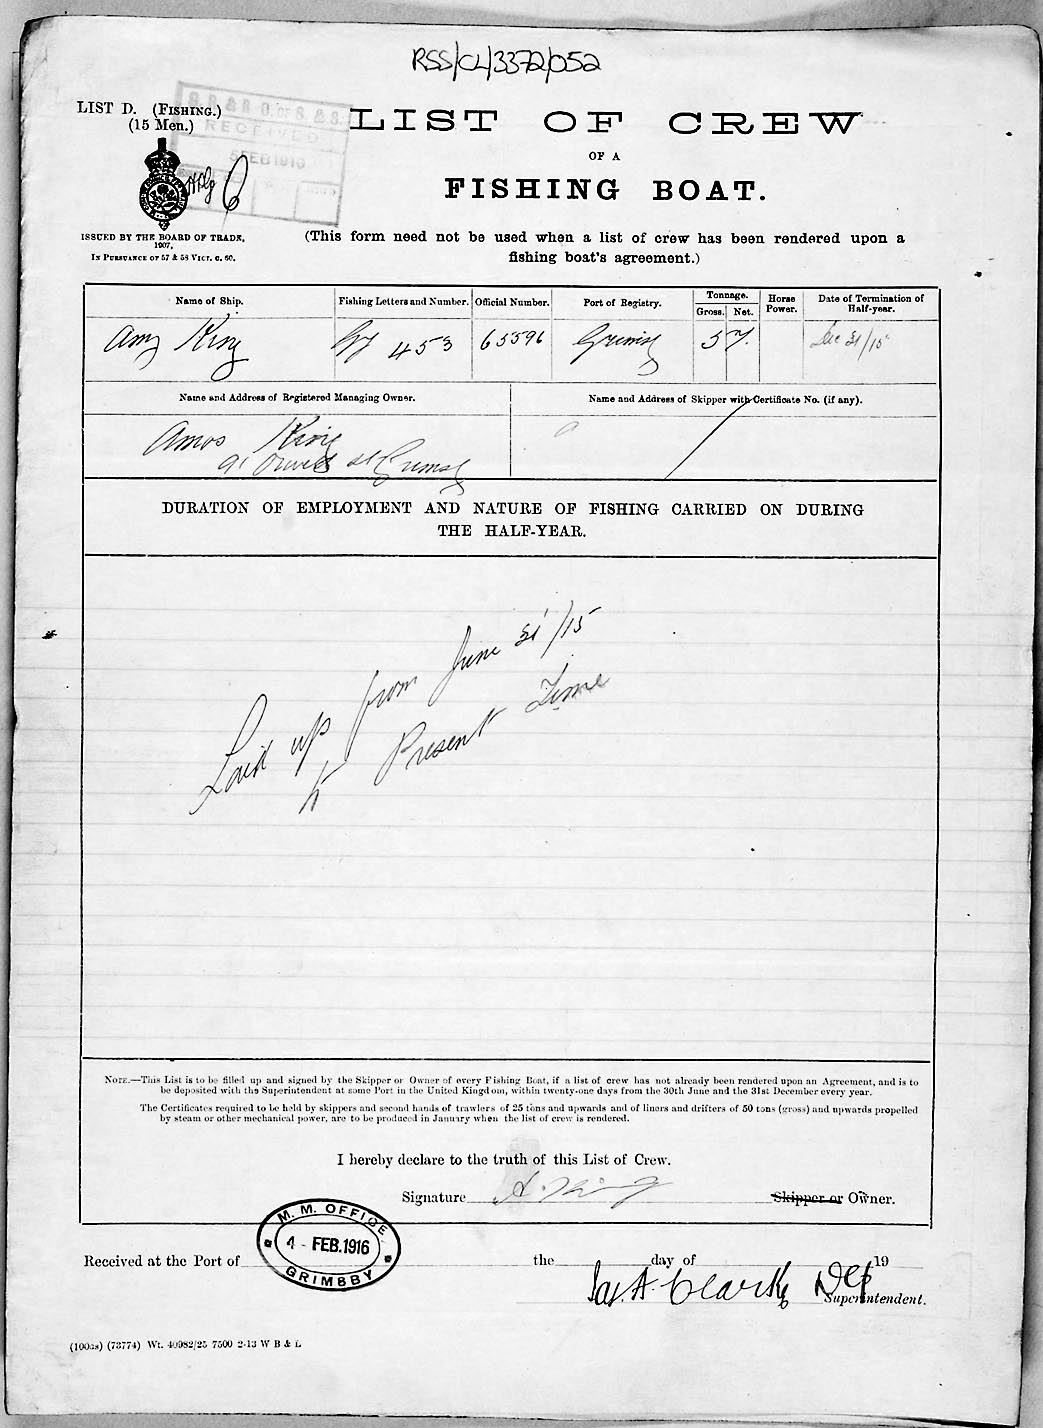 RSS/CL/3372/052
LIST D. (FISHING.)
(15 Men.)
RECEIVED
5 FEB 1916
LIST OF CREW
OF A
FISHING BOAT.
6
ISSUED BY THE BOARD OF TRADE,
1907,
IN PURSUANCE OF 57 & 58 VICT. C. 60.
(This form need not be used when a list of crew has been rendered upon a
fishing boat's agreement.)
Name of Ship. Fishing Letters and Number. Official Number. Port of Registry. Tonnage. Gross. Net. Horse Power. Date of Termination of Half-year.
Amy King Gy 453 65596 Grimsby 57. Dec 31/15
Name and Address of Registered Managing Owner. Name and Address of Skipper with Certificate No. (if any).
Amos King
Grimsby
DURATION OF EMPLOYMENT AND NATURE OF FISHING CARRIED ON DURING
THE HALF-YEAR.
Laid up from June 31/15
to Present Time
NOTE.—This List is to be filled up and signed by the Skipper or Owner of every Fishing Boat, if a list of crew has not already been rendered upon an Agreement, and is to
be deposited with the Superintendent at some Port in the United Kingdom, within twenty-one days from the 30th June and the 31st December every year.
The Certificates required to be held by skippers and second hands of trawlers of 25 tons and upwards and of liners and drifters of 50 tons (gross) and upwards propelled
by steam or other mechanical power, are to be produced in January when the list of crew is rendered.
I hereby declare to the truth of this List of Crew.
Signature A. King Skipper or Owner.
M. M. OFFICE
4 - FEB. 1916
GRIMSBY
Received at the Port of the day of 19
Jas. A. Clarke Dep
Superintendent.
(100as) (73774) Wt. 40982/25 7500 2-13 W B & L